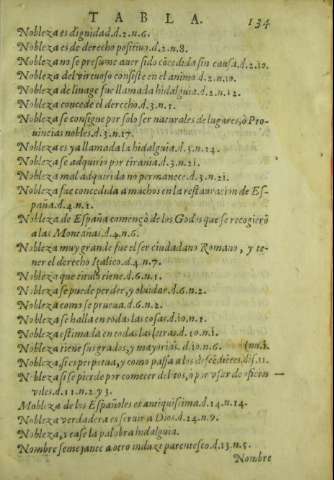 TABLA. 134
Nobleza es dignidad.d.2.n.6.
Nobleza es de derecho positiuo.d.2.n.8.
Nobleza no se presume auer sido cōcedida sin causa.d.2.10.
Nobleza del virtuoso consiste en el animo.d.2.n.10.
Nobleza de linage fue llamada hidalguia.d.2.n.12.
Nobleza concede el derecho.d.3.n.1.
Nobleza se consigue por solo ser naturales de lugares, ò Pro-
uincias nobles.d.3.n.17.
Nobleza es ya llamada la hidalguia.d.3.n.24.
Nobleza se adquirio por tirania.d.3.n.21.
Nobleza mal adquirida no permanece.d.3.n.21.
Nobleza fue concedida a muchos en la restauracion de Es-
paña.d.4.n.2.
Nobleza de España començò de los Godos que se recogierō
a las Montañas.d.4.n.6.
Nobleza muy grande fue el ser ciudadano Romano, y te-
ner el derecho Italico.d.4.n.7.
Nobleza que titulo tiene.d.6.n.1.
Nobleza se puede perder, y oluidar.d.6.n.2.
Nobleza como se prueua.d.6.n.2.
Nobleza se halla en todas las cosas.d.10.n.1.
Nobleza estimada en todas las letras.d.10.n.1.
Nobleza tiene sus grados, y mayorias.d.10.n.6. (nn.1.
Nobleza si es perpetua, y como passa a los descēdiētes.dis.11.
Nobleza si se pierde por cometer delitos, ò por vsar de oficios
viles.d.11.n.2 y 3.
Nobleza de los Españoles es antiquissima.d.14.n.14.
Nobleza verdadera es seruir a Dios.d.14.n.9.
Nobleza, vease la palabra hidalguia.
Nombre semejante a otro induze parentesco.d.13.n.5.
Nombre